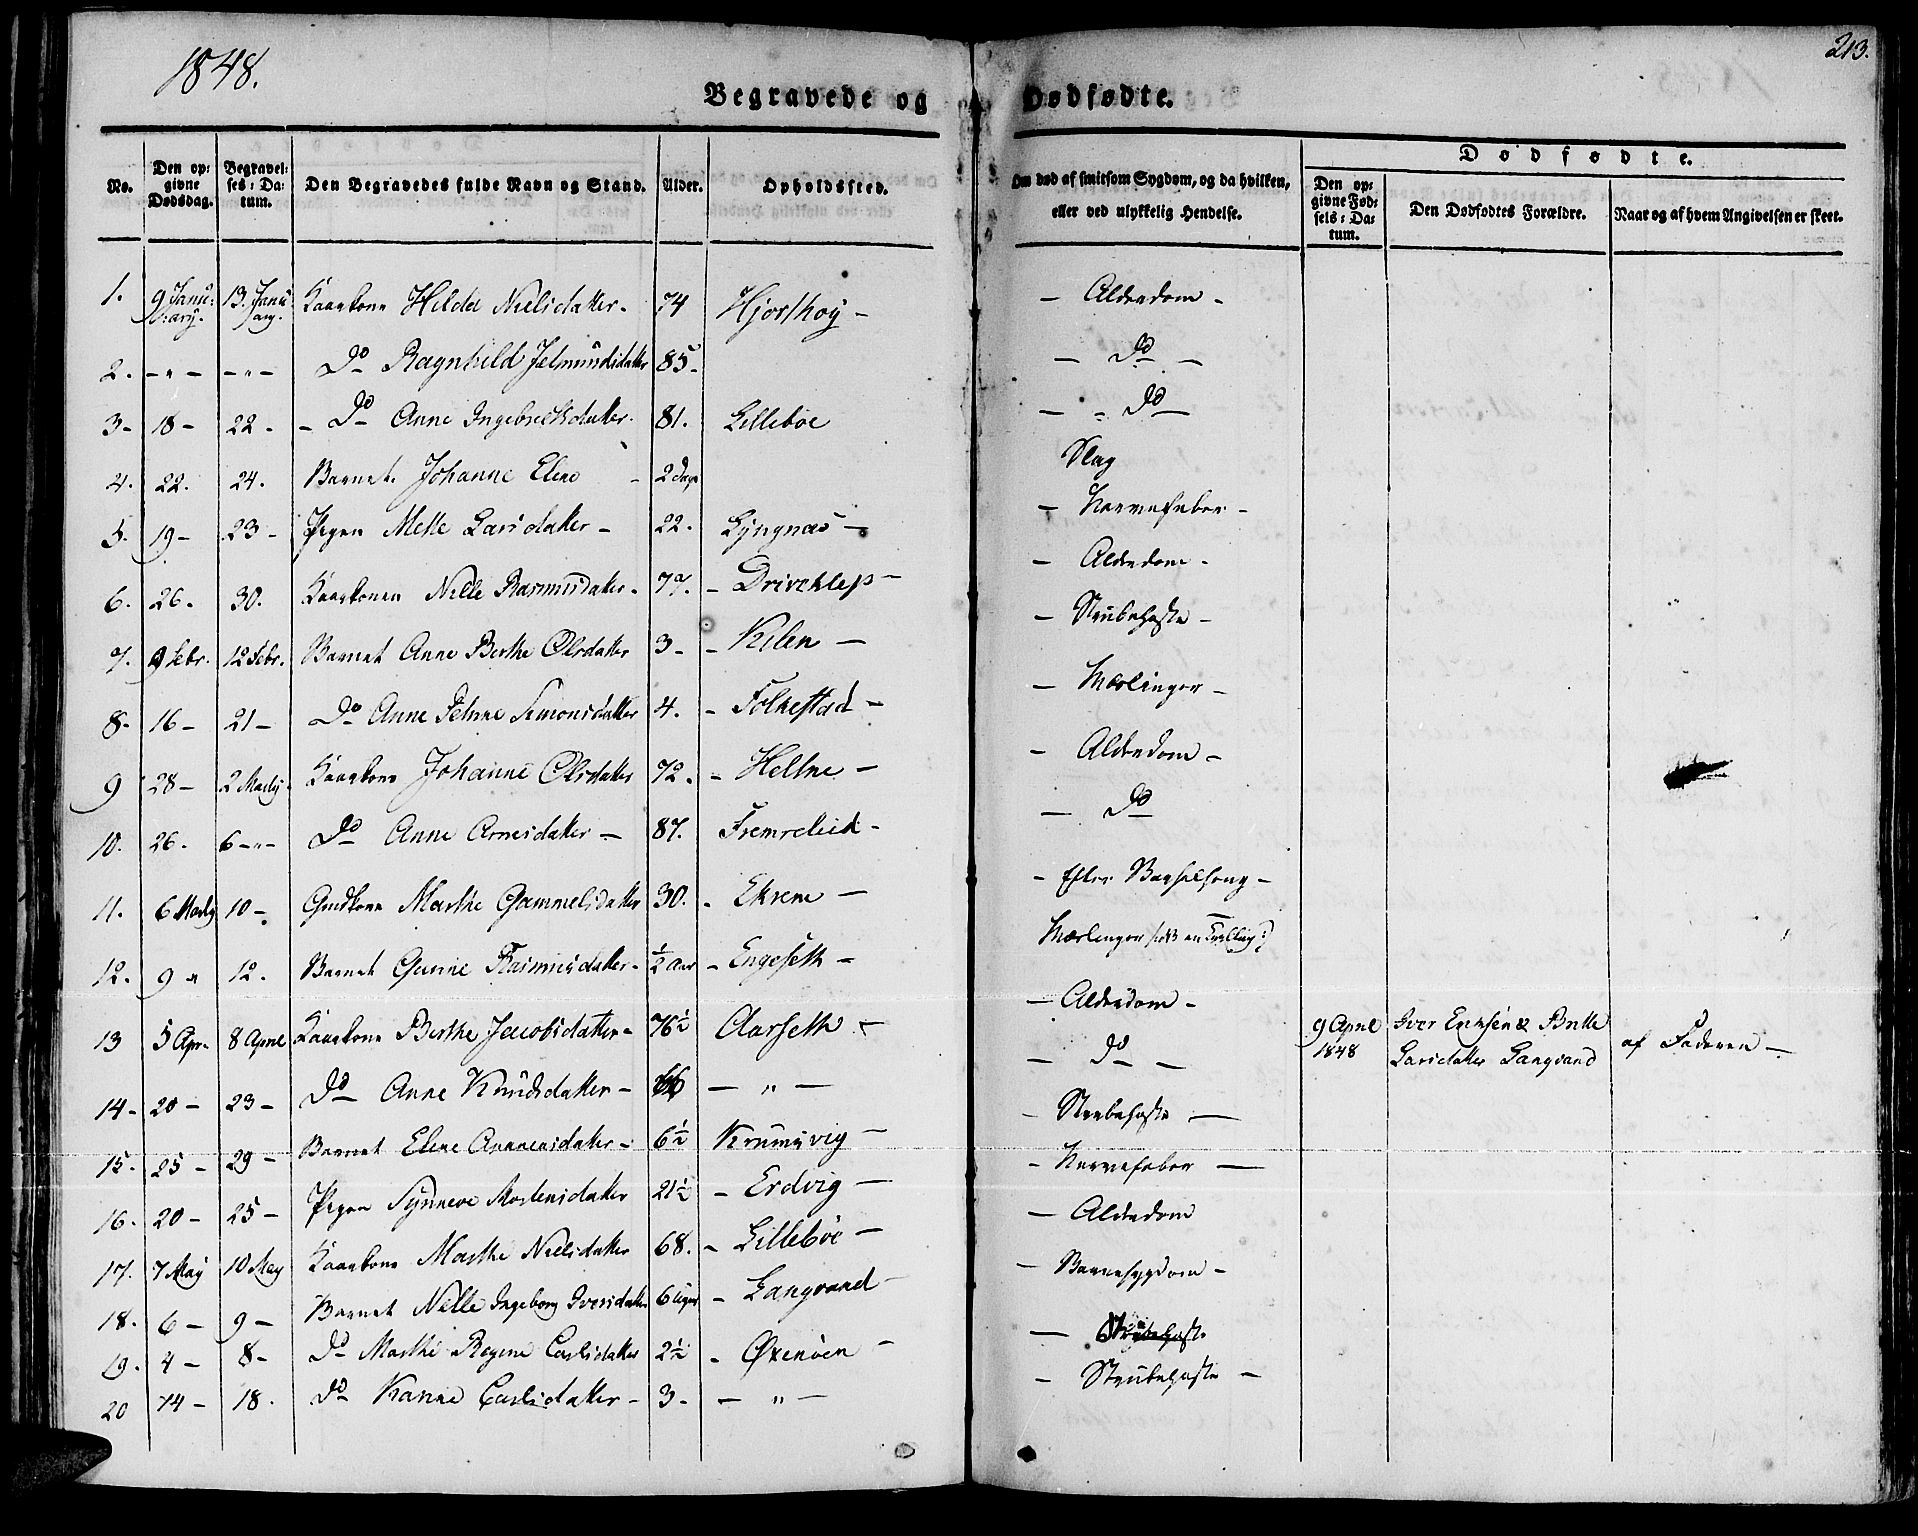 1848.
213.
Begravede og Dødfødte.
No.
Den opgivne Dødsdag.
Begravelses-Datum.
Den Begravedes fulde Navn og Stand.
Alder.
Opholdssted.
Om død af smitsom Sygdom, og da hvilken, eller ved ulykkelig Hendelse.
Dødfødte.
Den opgivne Fødsels-Datum.
Den Dødfødtes Forældre.
Naar og af hvem Angivelsen er skeet.
1. 9 Janu:ary. 13. January. Kaarkone Hilda Nielsdatter. 74 Hjorthoy - - Alderdom -
2. - " - - " - Do Ragnhild Jetmundsdatter 85 - - Do -
3 - 18 - 22 - - Do Anne Ingebrigtsdatter. 81. Lillebøe - " Do -
4. 22. 24. Barnet Johanne Elene - 2 Dage Slag
5. 19 - 23 - Pigen Mette Larsdatter - 22. Lyngnæs - - Nervefeber -
6. 26. 30. Kaarkonen Nille Rasmusdatter - 77. - Driveklep - - Alderdom -
7. 9 Febr. 12 Febr. Barnet Anne Berthe Olsdatter 3 - - Kilen - - Strubehoste -
8 - 16 - 21 - Do Anne Simonsdatter 4. - Folkestad - - Mæslinger -
9 28 - 2 Marts Kaarkone Johanne Olsdatter 72. - Heltne - - Alderdom -
10. 26. 6 - " - Do Anne Arnesdatter - 87. Fremreleid - - Do
11. 6 Marts 10 - Gmdkone Marthe Gammelsdatter 30. - Ekrene - - Efter Barselseng -
12. 9 " 12. Barnet Gurine Rasmusdatter - ½ Aar - Engeseth - Mæslinger (: en Tvelling :)
13 5 Apr. 8 April Kaarkone Berthe Jacobsdatter - 76½ Aarseth - - Alderdom -
9 April 1848 Iver Ericksen & Brithe Larsdatter Langvand af Faderen -
14 - 20 - 23 - Do Anne Knudsdatter - 66 - " - - Do -
15. 25 - 29 - Barnet Elene datter - 6½ Krumsvig - - Strubehoste -
16. 20 - 25 - Pigen Synneve Mortensdatter 21½ - Erdvig - - Nervefeber -
17. 7 May 10 May Kaarkone Marthe Nielsdatter 68. - Lillebøe - - Alderdom
18. 6 - 9 - Barnet Nille Ingeborg Iversdatter 6 Uger - Langvand - - Barnesygdom -
19. 4 - 8 - Do Marthe Regine Carlsdatter 2½ - Øxenøen - - Strubehoste
20 14 - 18. Do Hanne Carlsdatter - 3 - - " - - Strubehoste -